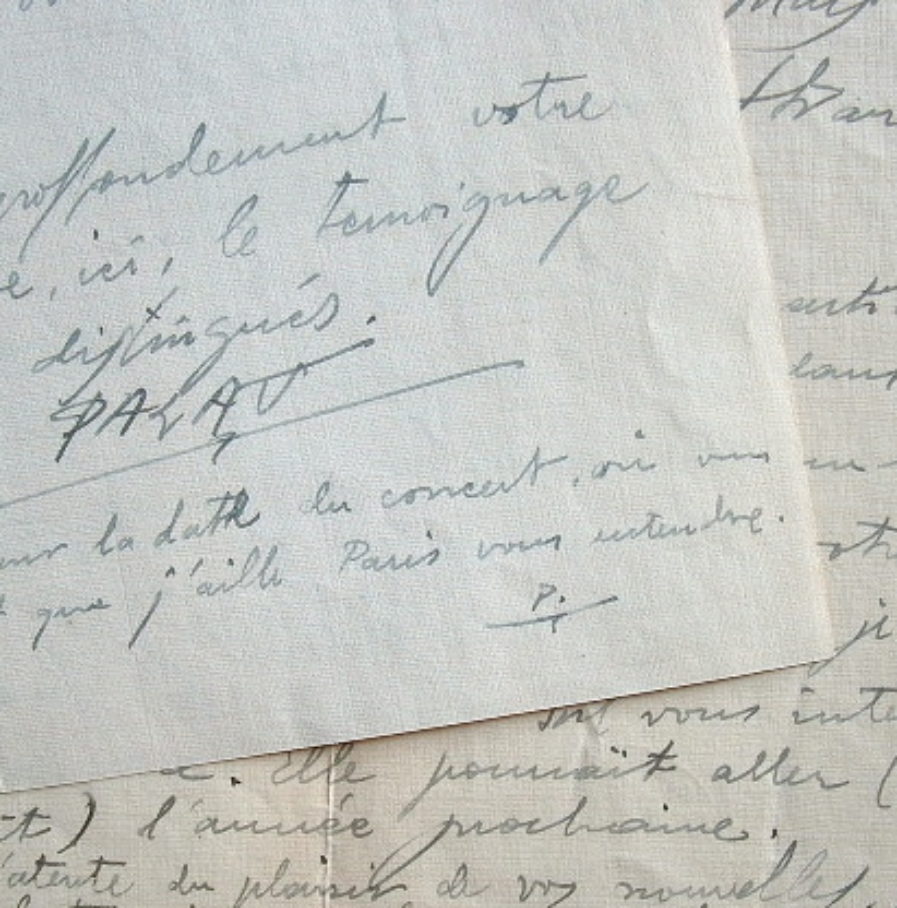 proffondement votre
e, ici, le temoignage
distingués.
PALAU
sur la date du concert, où vous
que j'aille Paris vous entendre.
P.
je
vous inte
Elle pourrait aller (
t) l'année prochaine.
l'atente du plaisir de vos nouvelles,